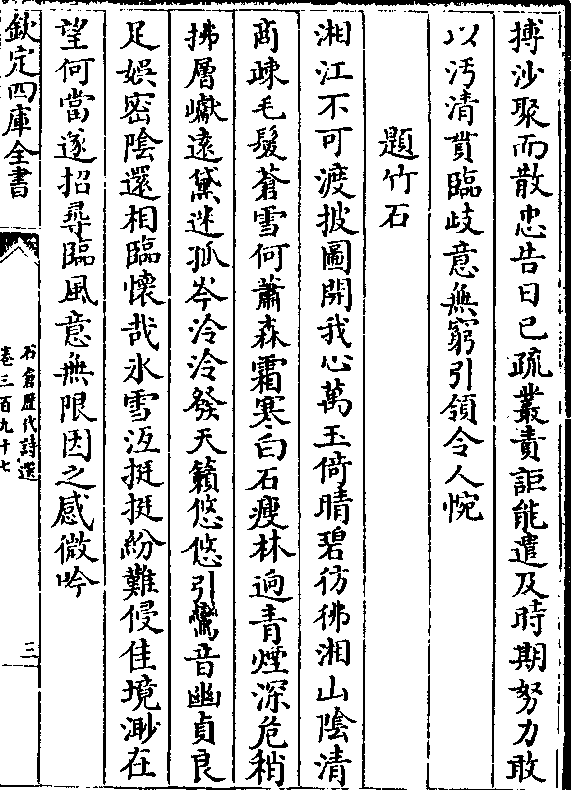 搏沙聚而散忠告日已疏叢責詎能遣及時期努力敢
以汚清貫臨歧意無窮引領令人惋
題竹石
湘江不可渡披圖開我心萬玉倚晴碧彷彿湘山陰清
商疎毛髮蒼雪何蕭森霜寒白石瘦林逈青煙深危稍
拂層巘遠黛迷孤岑泠泠發天籟悠悠引鸞音幽貞良
足娯密陰還相臨懷哉氷雪沍挺挺紛難侵佳境渺在
望何當遂招尋臨風意無限因之感微吟
欽定四庫全書
石倉歷代詩選
卷三百九十七
三